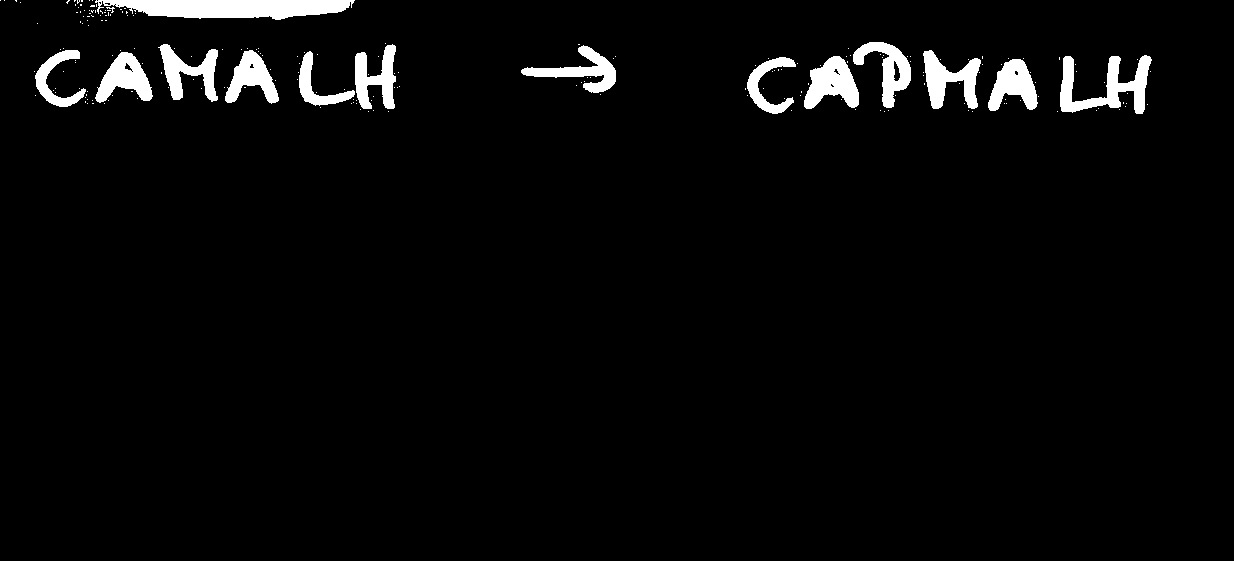 CAMALH → CAPMALH